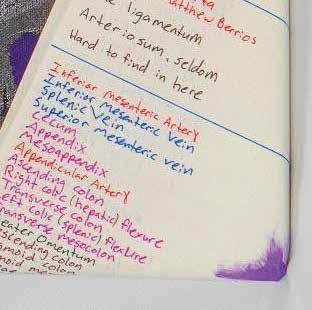 ta
Matthew Berrios
ligamentum
Arteriosum, seldom
Hard to find in here
Inferior mesenteric Artery
Inferior Mesenteric Vein
Splenic Vein
Superior mesenteric vein
Cecum
Appendix
mesoappendix
Appendicular Artery
Ascending colon
Right colic (hepatic) flexure
Transverse colon
eft colic (splenic) flexure
ransverse mesocolon
eater Omentum
scending colon
gmoid colon